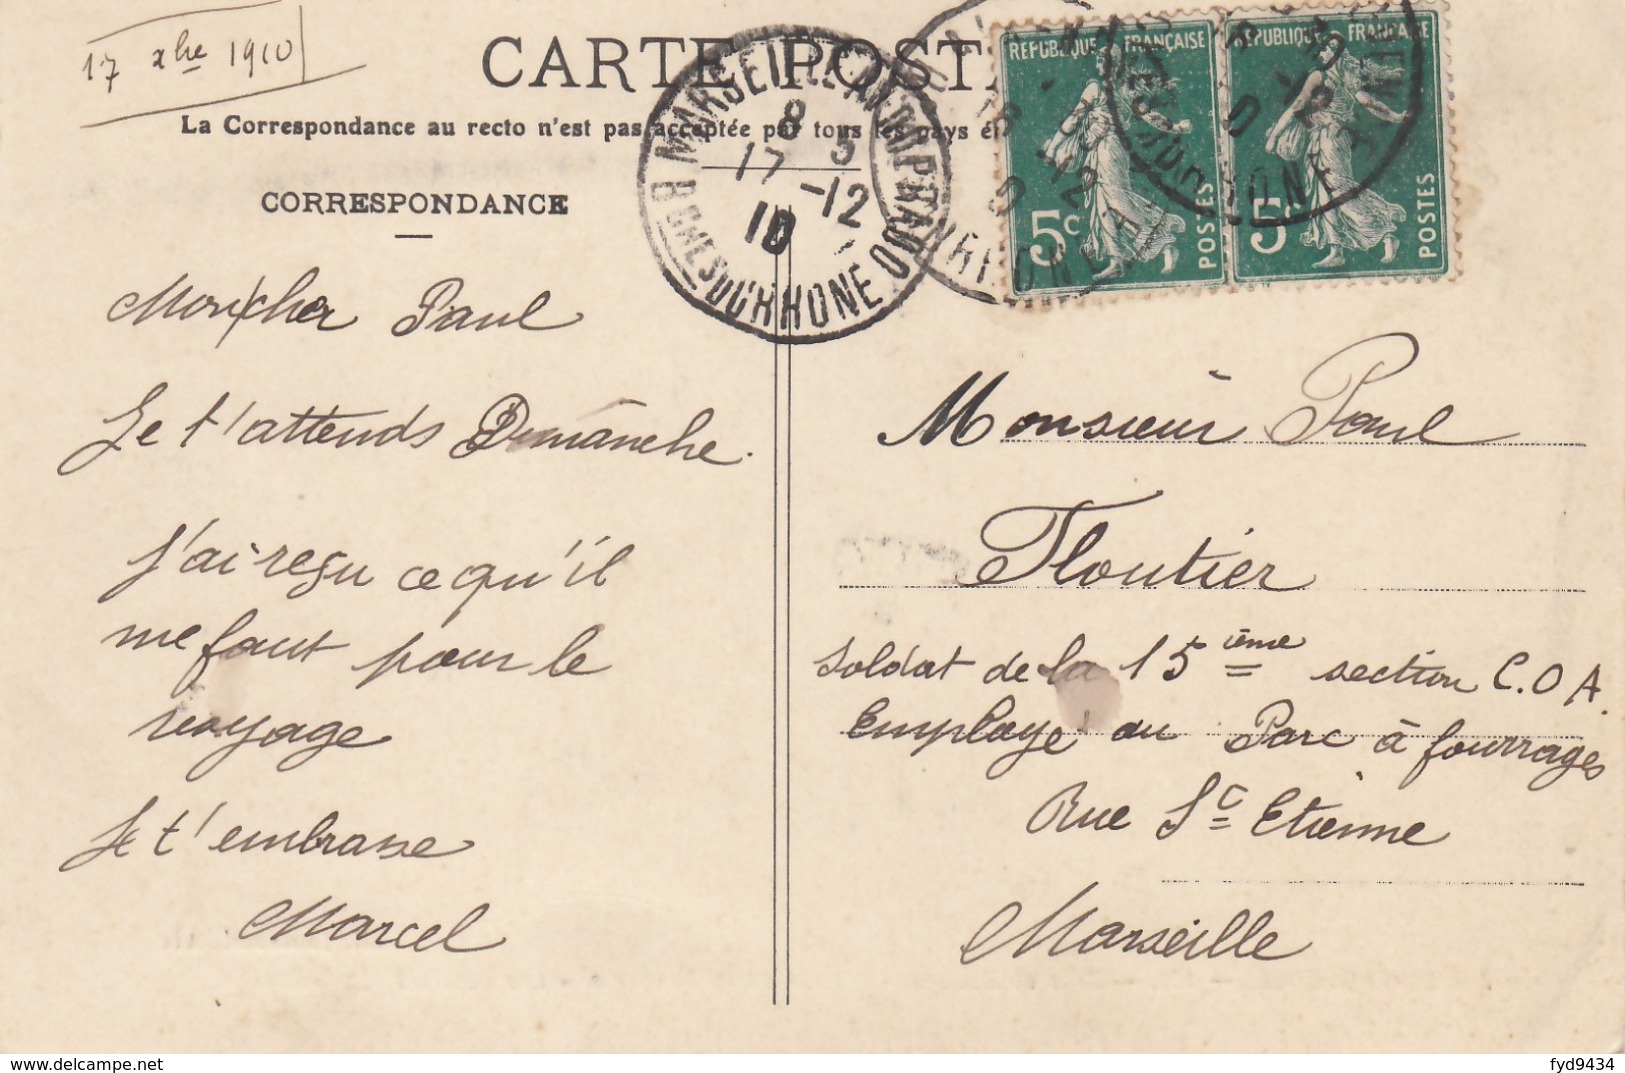 17 xbre 1910
CARTE POSTA
La Correspondance au recto n'est pas acceptée par tous les pays
CORRESPONDANCE
RÉPUBLIQUE FRANÇAISE
5c
POSTES
RÉPUBLIQUE FRANÇAISE
5c
POSTES
MARSEILLE
8
17 -12
10
BCHES DU RHONE
Mon cher Paul
Je t'attends Dimanche.
J'ai reçu ce qu'il
me faut pour le
voyage
Je t'embrasse
Marcel
Monsieur Paul
Floutier
Soldat de la 15ième section C.O.A.
Employé au Parc à fourrages
Rue St Etienne
Marseille
delcampe.net
fyd9434